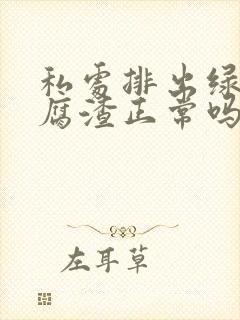 私处排出绿
腐渣正常吗
左耳草